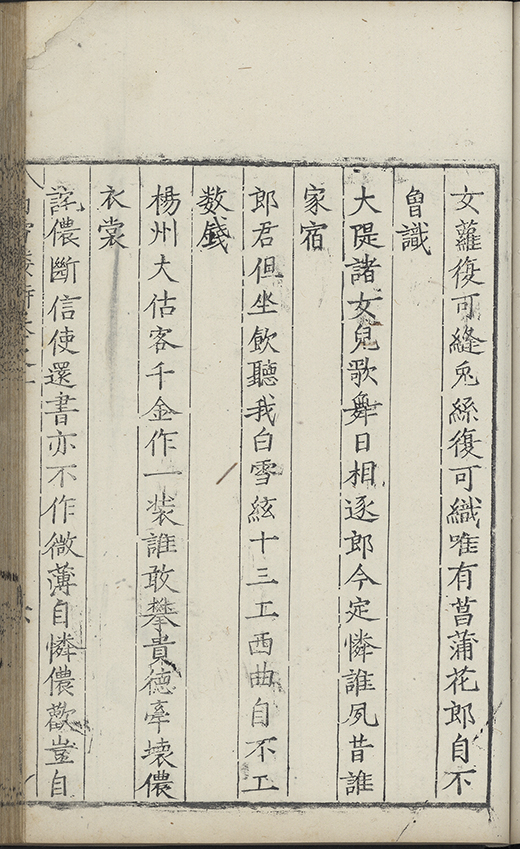 女蘿復可縫兎絲復可織唯有菖蒲花郎自不
曾識
大隄諸女兒歌舞日相逐郎今定憐誰夙昔誰
家宿
郎君但坐飲聽我白雪絃十三工西曲自不工
数錢
楊州大估客千金作一裝誰敢攀貴德牽壞儂
衣裳
詫儂斷信使還書亦不作微薄自憐儂歡豈自